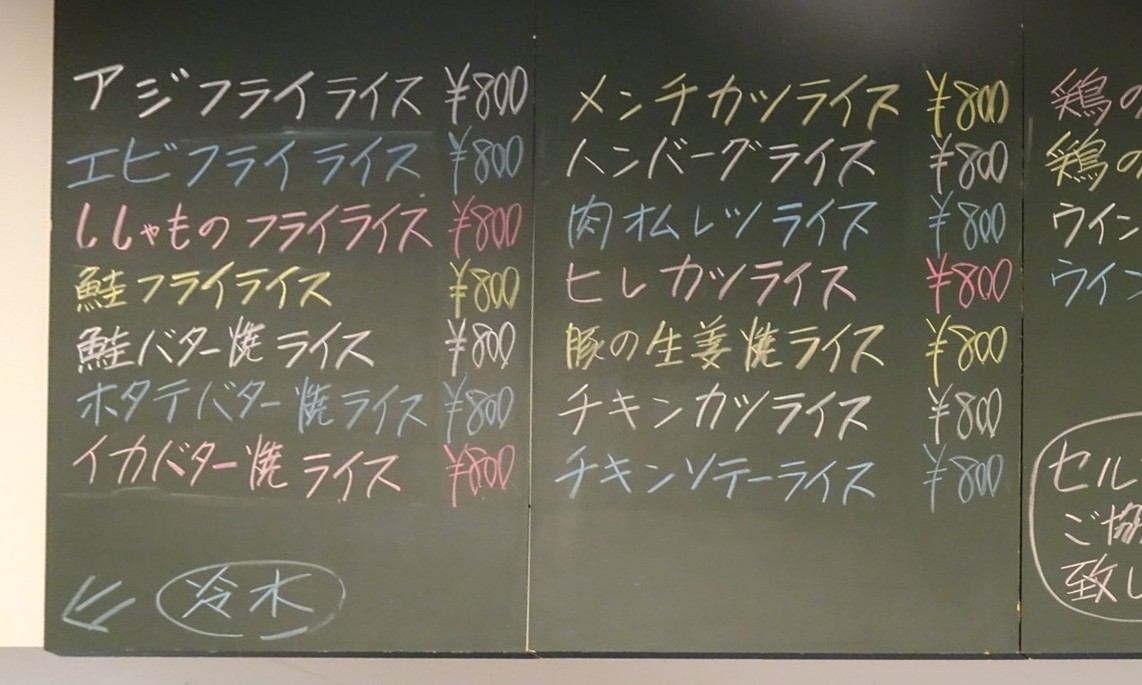 アジフライライス ¥800
エビフライライス ¥800
ししゃものフライライス ¥800
鮭フライライス ¥800
鮭バター焼ライス ¥800
ホタテバター焼ライス ¥800
イカバター焼ライス ¥800
冷水
メンチカツライス ¥800
ハンバーグライス ¥800
肉オムレツライス ¥800
ヒレカツライス ¥800
豚の生姜焼ライス ¥800
チキンカツライス ¥800
チキンソテーライス ¥800
鶏の
鶏の
ウイン
ウイン
セル
ご協
致し